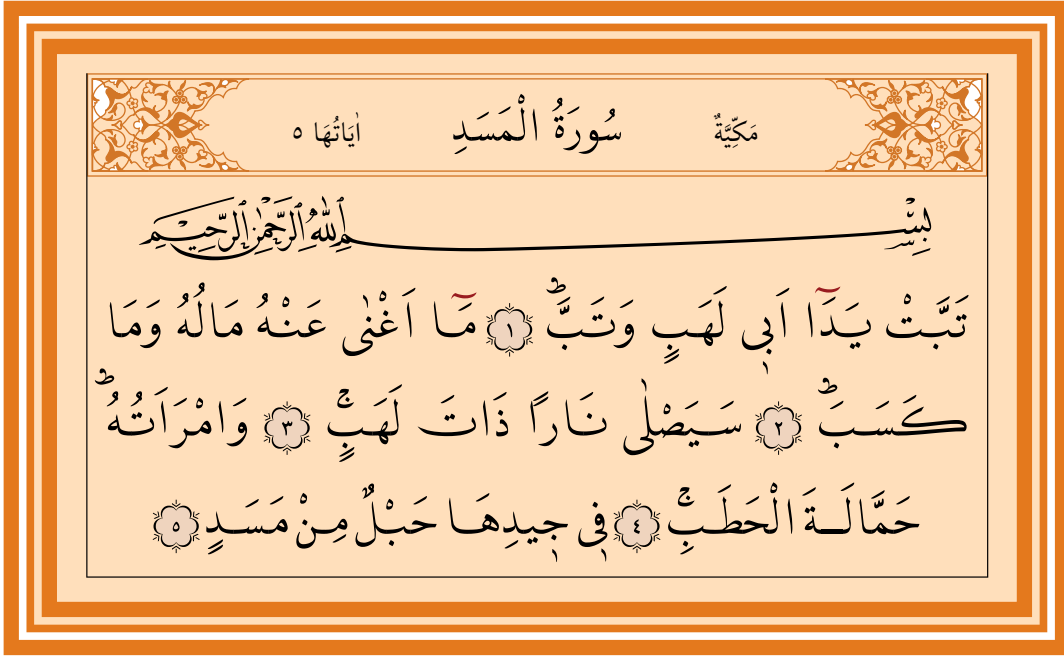 مَكِّيَّةٌ سُورَةُ الْمَسَدِ اٰيَاتُهَا ٥
بِسْمِ اللّٰهِ الرَّحْمٰنِ الرَّحِيمِ
تَبَّتْ يَدَٓا اَبٖي لَهَبٍ وَتَبَّۜ ١ مَٓا اَغْنٰى عَنْهُ مَالُهُ وَمَا
كَسَبَۜ ٢ سَيَصْلٰى نَارًا ذَاتَ لَهَبٍۚ ٣ وَامْرَاَتُهُۜ
حَمَّالَةَ الْحَطَبِۚ ٤ فٖي جٖيدِهَا حَبْلٌ مِنْ مَسَدٍ ٥